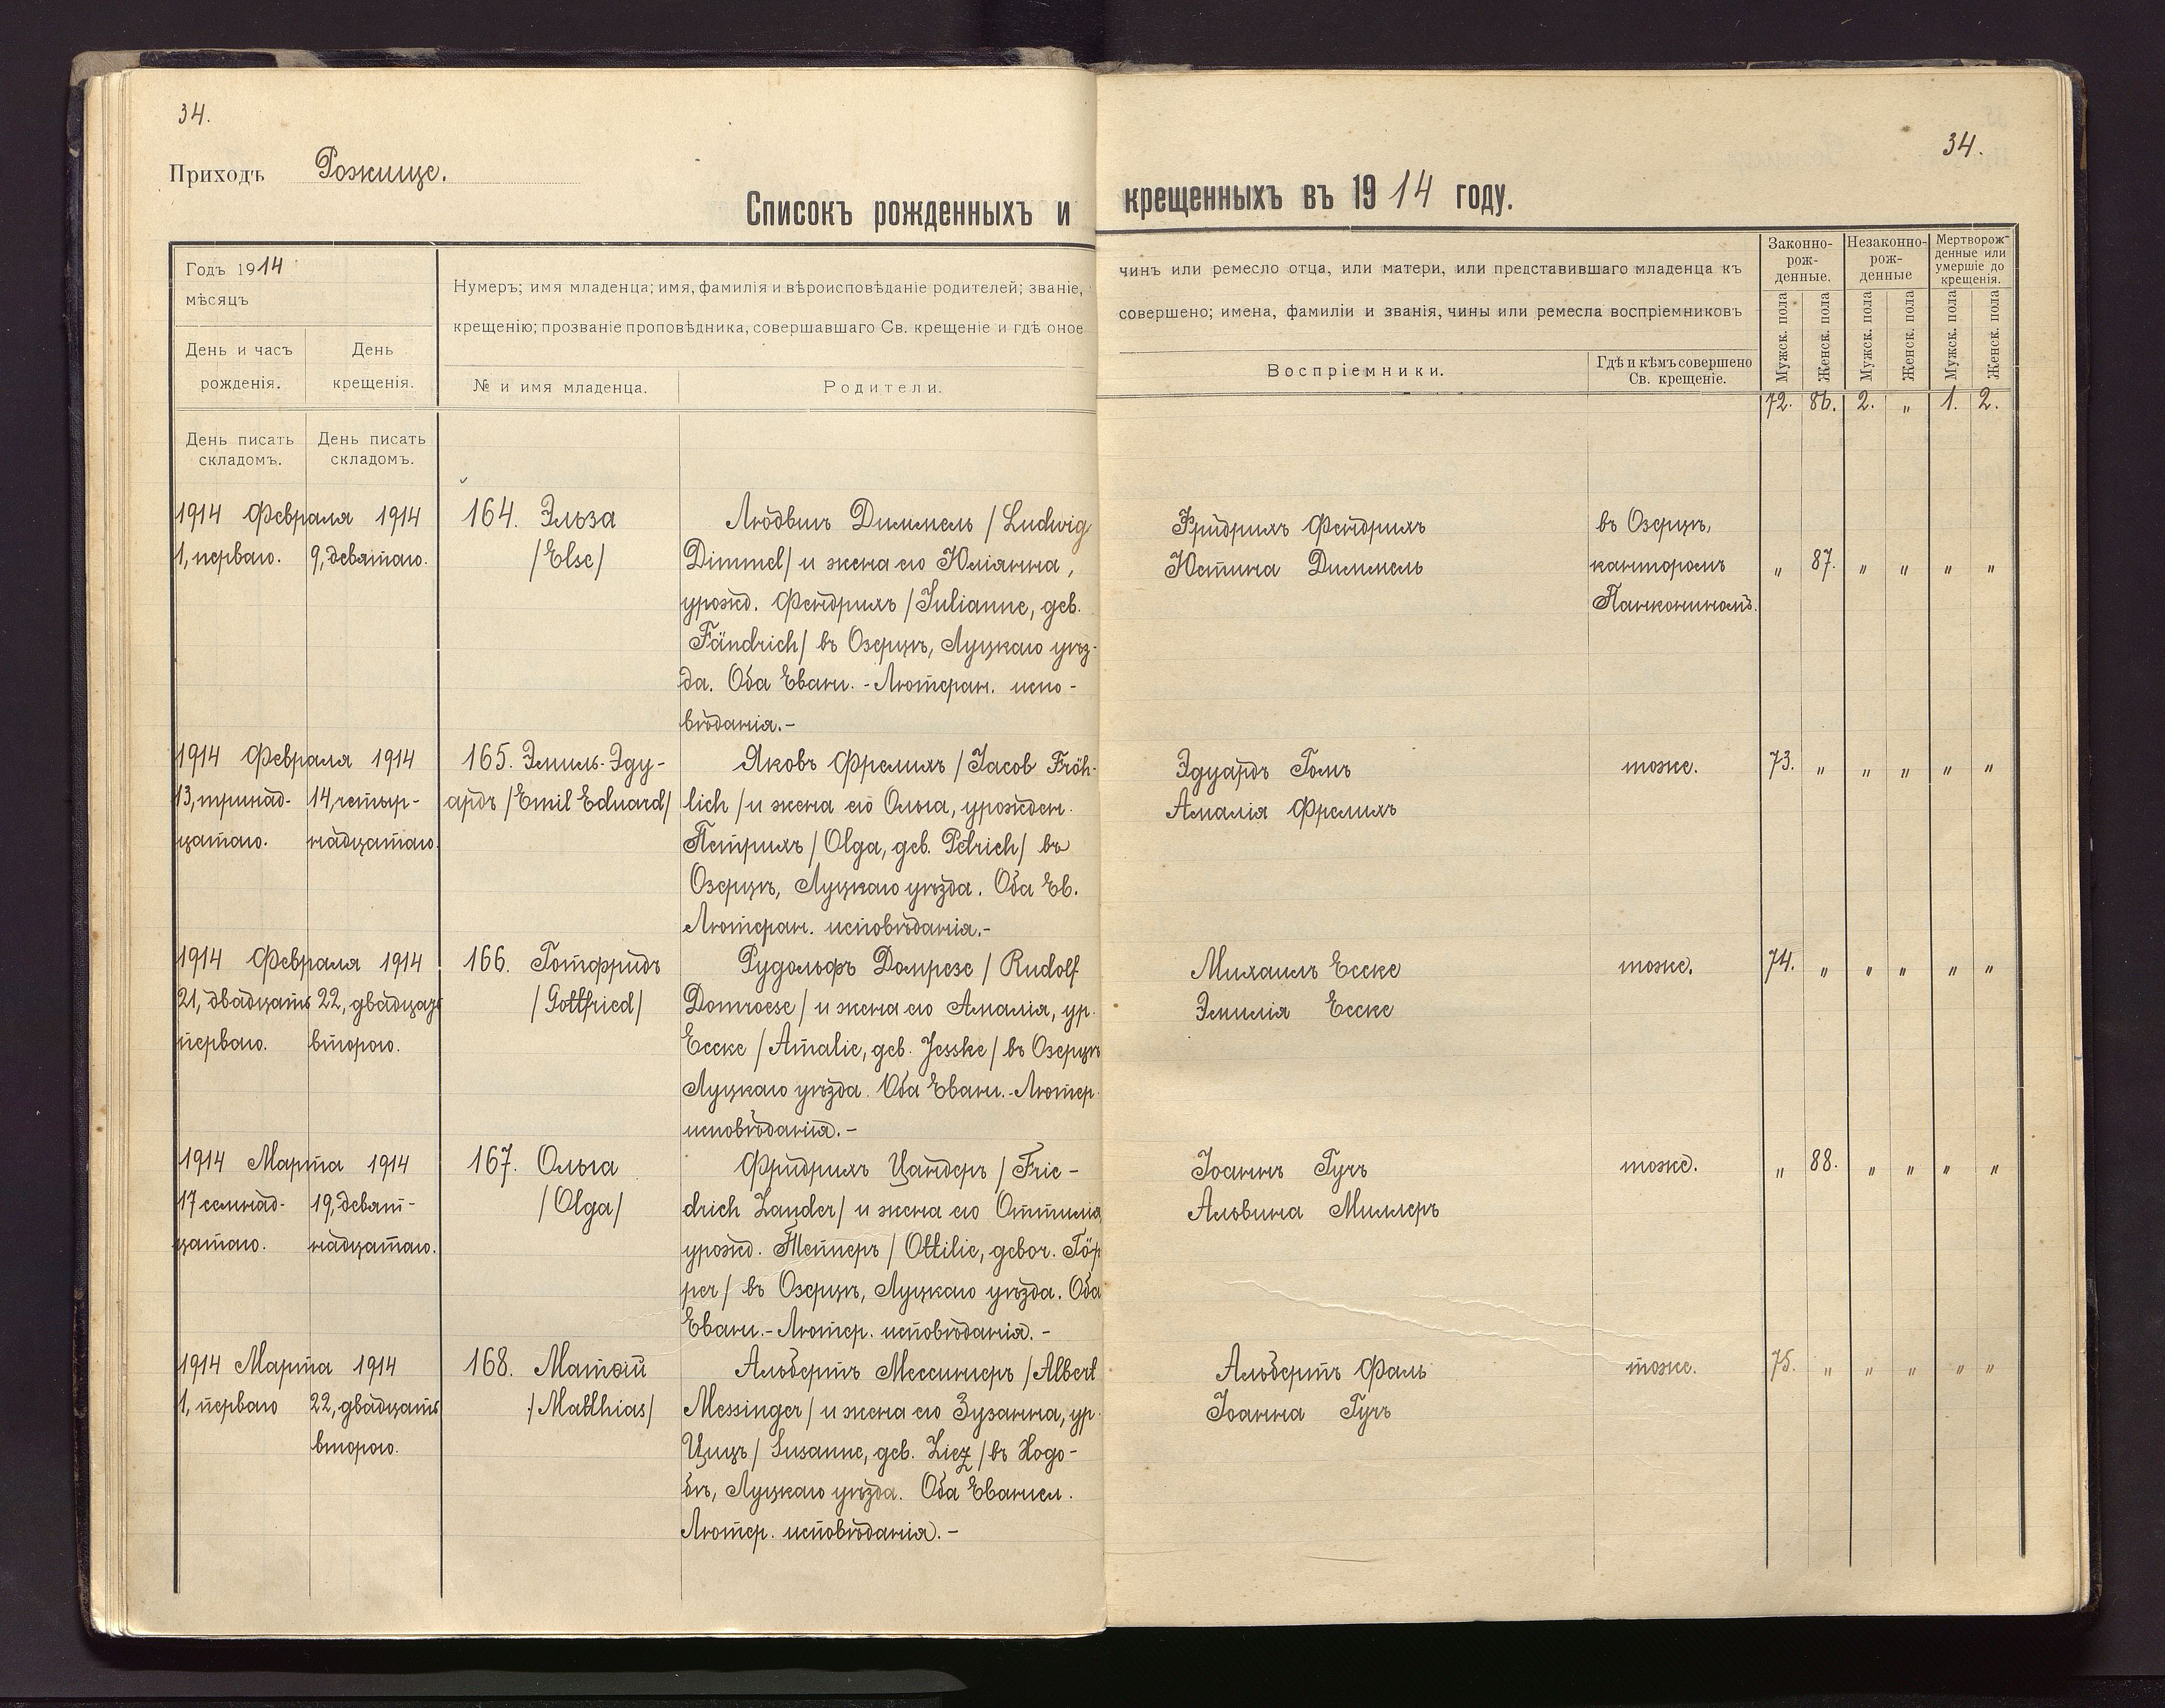 34.
Приходъ Рожище.
Списокъ рожденныхъ и
Годъ 1914
мѣсяцъ
День и часъ рожденія.
День крещенія.
Нумеръ; имя младенца; имя, фамилія и вѣроисповѣданіе родителей; званіе,
крещенію; прозваніе проповѣдника, совершавшаго Св. крещеніе и гдѣ оное
№ и имя младенца.
Родители.
День писать складомъ.
День писать складомъ.
1914 Февраля 1914
1, перваго.
9, девятаго.
164. Эльза
/Else/
Людвигъ Диммель /Ludwig
Dimmel/ и жена его Юліанна,
урожд. Фендрихъ /Julianne, geb.
Fändrich/ въ Озерцѣ, Луцкаго уѣз-
да. Оба Еванг.-Лютеран. испо-
вѣданія.-
1914 Февраля 1914
13, тринад-
цатаго.
14, четыр-
надцатаго.
165. Эмиль-Эду-
ардъ /Emil Eduard/
Яковъ Фрелихъ /Jacob Fröh-
lich/ и жена его Ольга, урожден.
Петрихъ /Olga, geb. Petrich/ въ
Озерцѣ, Луцкаго уѣзда. Оба Ев.
Лютеран. исповѣданія.-
1914 Февраля 1914
21, двадцать
перваго.
22, двадцать
второго.
166. Готфридъ
/Gottfried/
Рудольфъ Домрезе /Rudolf
Domroese/ и жена его Амалія, ур.
Есске /Amalie, geb. Jesske/ въ Озерцѣ
Луцкаго уѣзда. Оба Еванг.-Лютер.
исповѣданія.-
1914 Марта 1914
17 семнад-
цатаго.
19, девят-
надцатаго.
167. Ольга
/Olga/
Фридрихъ Цандеръ /Frie-
drich Zander/ и жена его Оттилія
урожд. Тепперъ /Ottilie, gebor. Töp
per/ въ Озерцѣ, Луцкаго уѣзда. Оба
Еванг.-Лютер. исповѣданія.-
1914 Марта 1914
1, перваго
22, двадцать
второго.
168. Матѳій
/Matthias/
Альбертъ Мессингеръ /Albert
Messinger/ и жена его Зузанна, ур.
Цицъ /Susanne, geb. Ziez/ въ Ходо-
бѣ, Луцкаго уѣзда. Оба Евангел.
Лютер. исповѣданія.-
34.
крещенныхъ въ 1914 году.
чинъ или ремесло отца, или матери, или представившаго младенца къ
совершено; имена, фамиліи и званія, чины или ремесла воспріемниковъ
Воспріемники.
Гдѣ и кѣмъ совершено
Св. крещеніе.
Законно-
рож-
денные.
Незаконно-
рож-
денные
Мертворож-
денные или
умершіе до
крещенія.
Мужск. пола
Женск. пола
Мужск. пола
Женск. пола
Мужск. пола
Женск. пола
72. 86. 2. „ 1. 2.
Фридрихъ Фендрихъ
Юстина Диммель
въ Озерцѣ,
канторомъ
Панконинымъ.
„ 87. „ „ „ „
Эдуардъ Гомъ
Амалія Фрелихъ
тоже.
73. „ „ „ „ „
Михаилъ Есске
Эмилія Есске
тоже.
74. „ „ „ „ „
Іоаннъ Гучъ
Альвина Миллеръ
тоже.
„ 88. „ „ „ „
Альбертъ Фаль
Іоанна Гучъ
тоже.
75. „ „ „ „ „